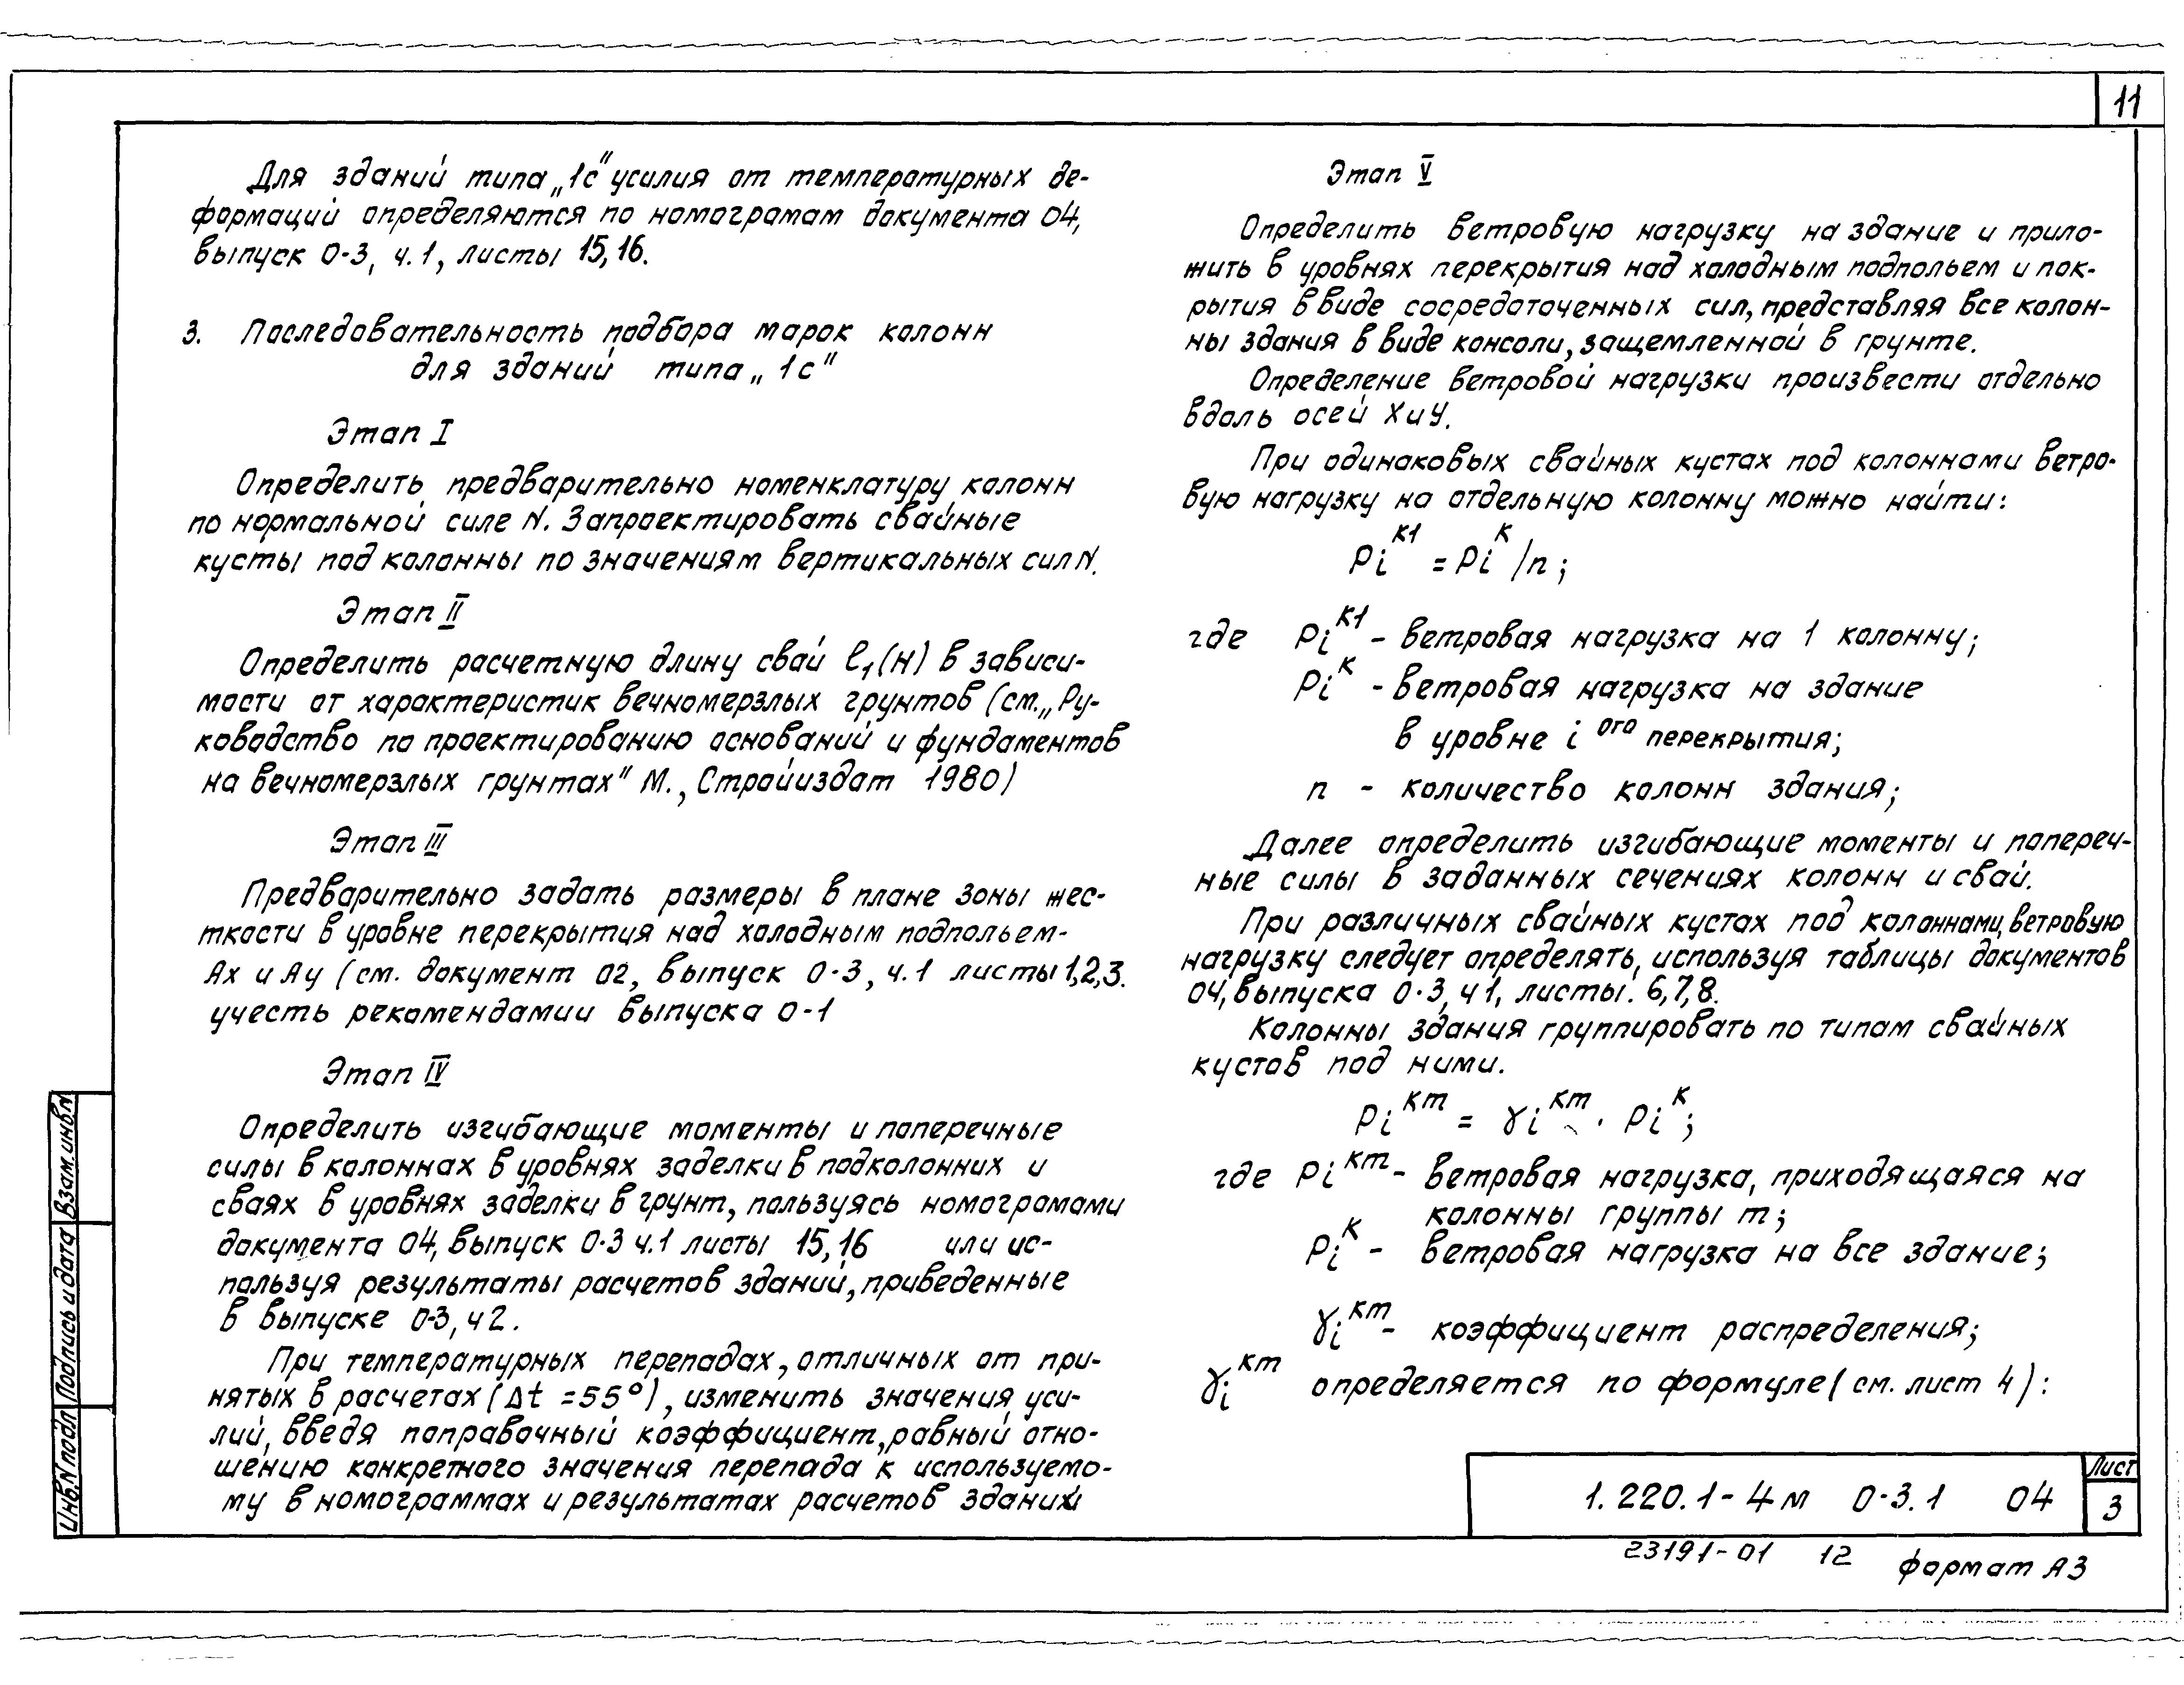 11
Для зданий типа „1с" усилия от температурных де-
формаций определяются по номограмам документа 04,
выпуск 0-3, ч.1, листы 15,16.
3. Последовательность подбора марок колонн
для зданий типа „1с"
Этап I
Определить предварительно номенклатуру колонн
по нормальной силе N. Запроектировать свайные
кусты под колонны по значениям вертикальных сил N.
Этап II
Определить расчетную длину свай ℓ₁(Н) в зависи-
мости от характеристик вечномерзлых грунтов (см. „Ру-
ководство по проектированию оснований и фундаментов
на вечномерзлых грунтах" М., Стройиздат 1980)
Этап III
Предварительно задать размеры в плане зоны жес-
ткости в уровне перекрытия над холодным подпольем-
Ах и Ау (см. документ 02, выпуск 0-3, ч.1 листы 1,2,3.
учесть рекомендамии выпуска 0-1
Этап IV
Определить изгибающие моменты и поперечные
силы в колоннах в уровнях заделки в подколонних и
сваях в уровнях заделки в грунт, пользуясь номограмами
документа 04, выпуск 0-3 ч.1 листы 15,16 или ис-
пользуя результаты расчетов зданий, приведенные
в выпуске 0-3, ч2.
При температурных перепадах, отличных от при-
нятых в расчетах (Δt = 55°), изменить значения уси-
лий, введя поправочный коэффициент, равный отно-
шению конкретного значения перепада к используемо-
му в номограммах и результатах расчетов зданий
Этап V
Определить ветровую нагрузку на здание и прило-
жить в уровнях перекрытия над холодным подпольем и пок-
рытия в виде сосредоточенных сил, представляя все колон-
ны здания в виде консоли, защемленной в грунте.
Определение ветровой нагрузки произвести отдельно
вдоль осей Х и У.
При одинаковых свайных кустах под колоннами ветро-
вую нагрузку на отдельную колонну можно найти:
Pi^к1 = Pi^к /n;
где Pi^к1 - ветровая нагрузка на 1 колонну;
Pi^к - ветровая нагрузка на здание
в уровне i ого перекрытия;
n - количество колонн здания;
Далее определить изгибающие моменты и попереч-
ные силы в заданных сечениях колонн и свай.
При различных свайных кустах под колоннами, ветровую
нагрузку следует определять, используя таблицы документов
04, выпуска 0-3, ч1, листы. 6,7,8.
Колонны здания группировать по типам свайных
кустов под ними.
Pi^кm = γi^кm · Pi^к;
где Pi^кm - ветровая нагрузка, приходящаяся на
колонны группы m;
Pi^к - ветровая нагрузка на все здание;
γi^кm - коэффициент распределения;
γi^кm определяется по формуле (см. лист 4):
Взам.инв.N
Подпись и дата
Инв.N подл
1.220.1-4м 0-3.1 04
Лист
3
23191-01 12 формат А3